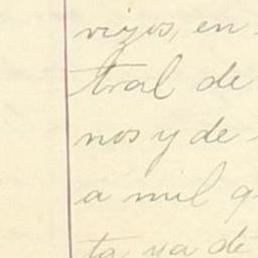 viejos, en
tral de
nos y de
a mil q
ta ya de